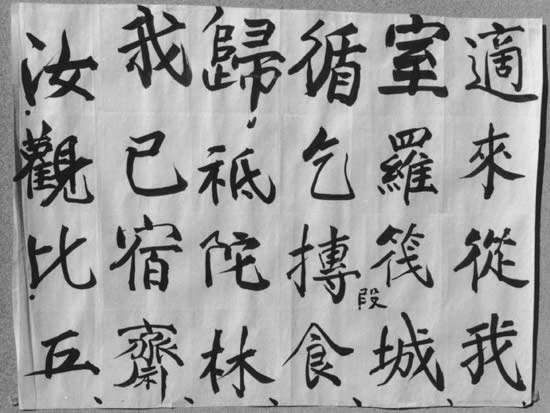 適來從我
室羅筏城
循乞摶食
段
歸祇陀林
我已宿齋
汝觀比丘